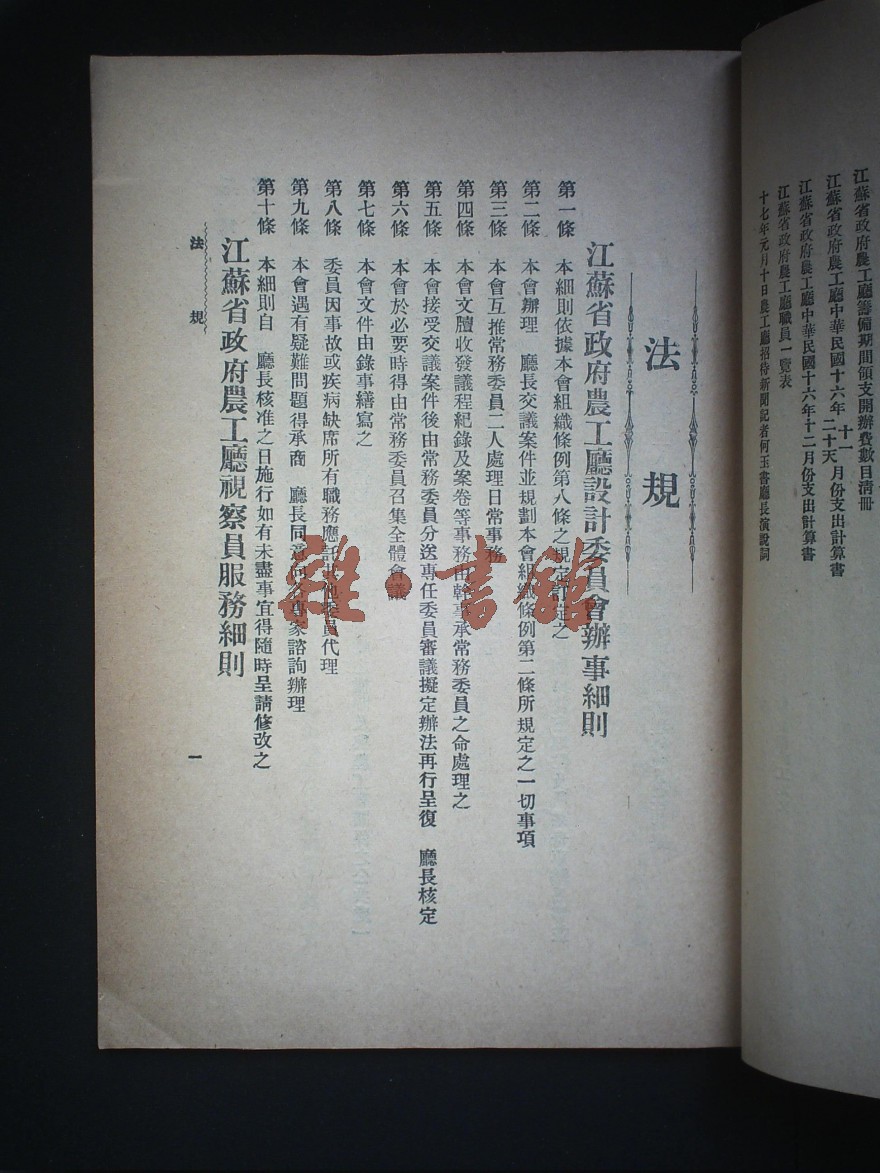 江蘇省政府農工廳籌備期間領支開辦費數目清冊
江蘇省政府農工廳中華民國十六年十一二十天月份支出計算書
江蘇省政府農工廳中華民國十六年十二月份支出計算書
江蘇省政府農工廳職員一覽表
十七年元月十日農工廳招待新聞記者何玉書廳長演說詞
法規
江蘇省政府農工廳設計委員會辦事細則
第一條 本細則依據本會組織條例第八條之規定訂定之
第二條 本會辦理 廳長交議案件並規劃本會組織條例第二條所規定之一切事項
第三條 本會互推常務委員二人處理日常事務
第四條 本會文牘收發議程紀錄及案卷等事務由幹事承常務委員之命處理之
第五條 本會接受交議案件後由常務委員分送專任委員審議擬定辦法再行呈復 廳長核定
第六條 本會於必要時得由常務委員召集全體會議
第七條 本會文件由錄事繕寫之
第八條 委員因事故或疾病缺席所有職務應託其他委員代理
第九條 本會遇有疑難問題得承商 廳長同意向各專家諮詢辦理
第十條 本細則自 廳長核准之日施行如有未盡事宜得隨時呈請修改之
江蘇省政府農工廳視察員服務細則
法規
一
雜·書館